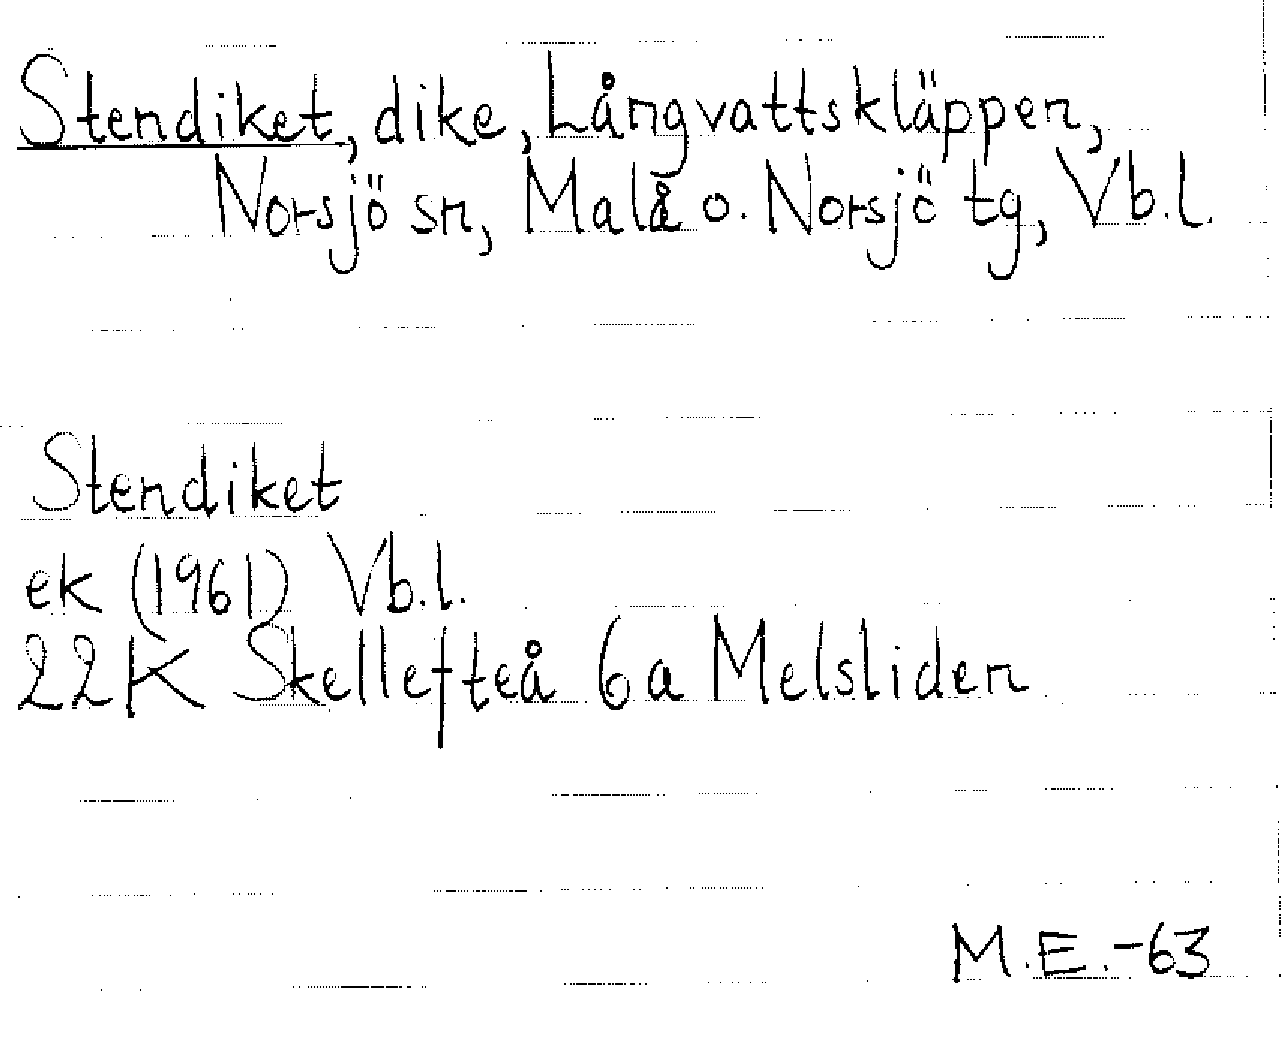 Stendiket, dike, Långvattskläppen,
Norsjö sn, Malå o. Norsjö tg, Vb.l.
Stendiket
ek (1961) Vb.l.
22K Skellefteå 6a Melsliden
M.E.-63